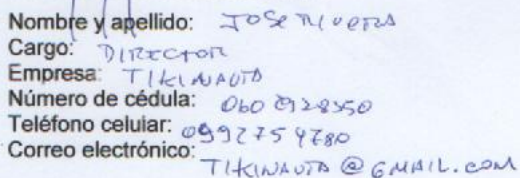 Nombre y apellido: JOSE RIVERA
Cargo: DIRECTOR
Empresa: TIKINAUTA
Número de cédula:
Teléfono celular: 0992754780
Correo electrónico:
TIKINAUTA @ GMAIL.COM